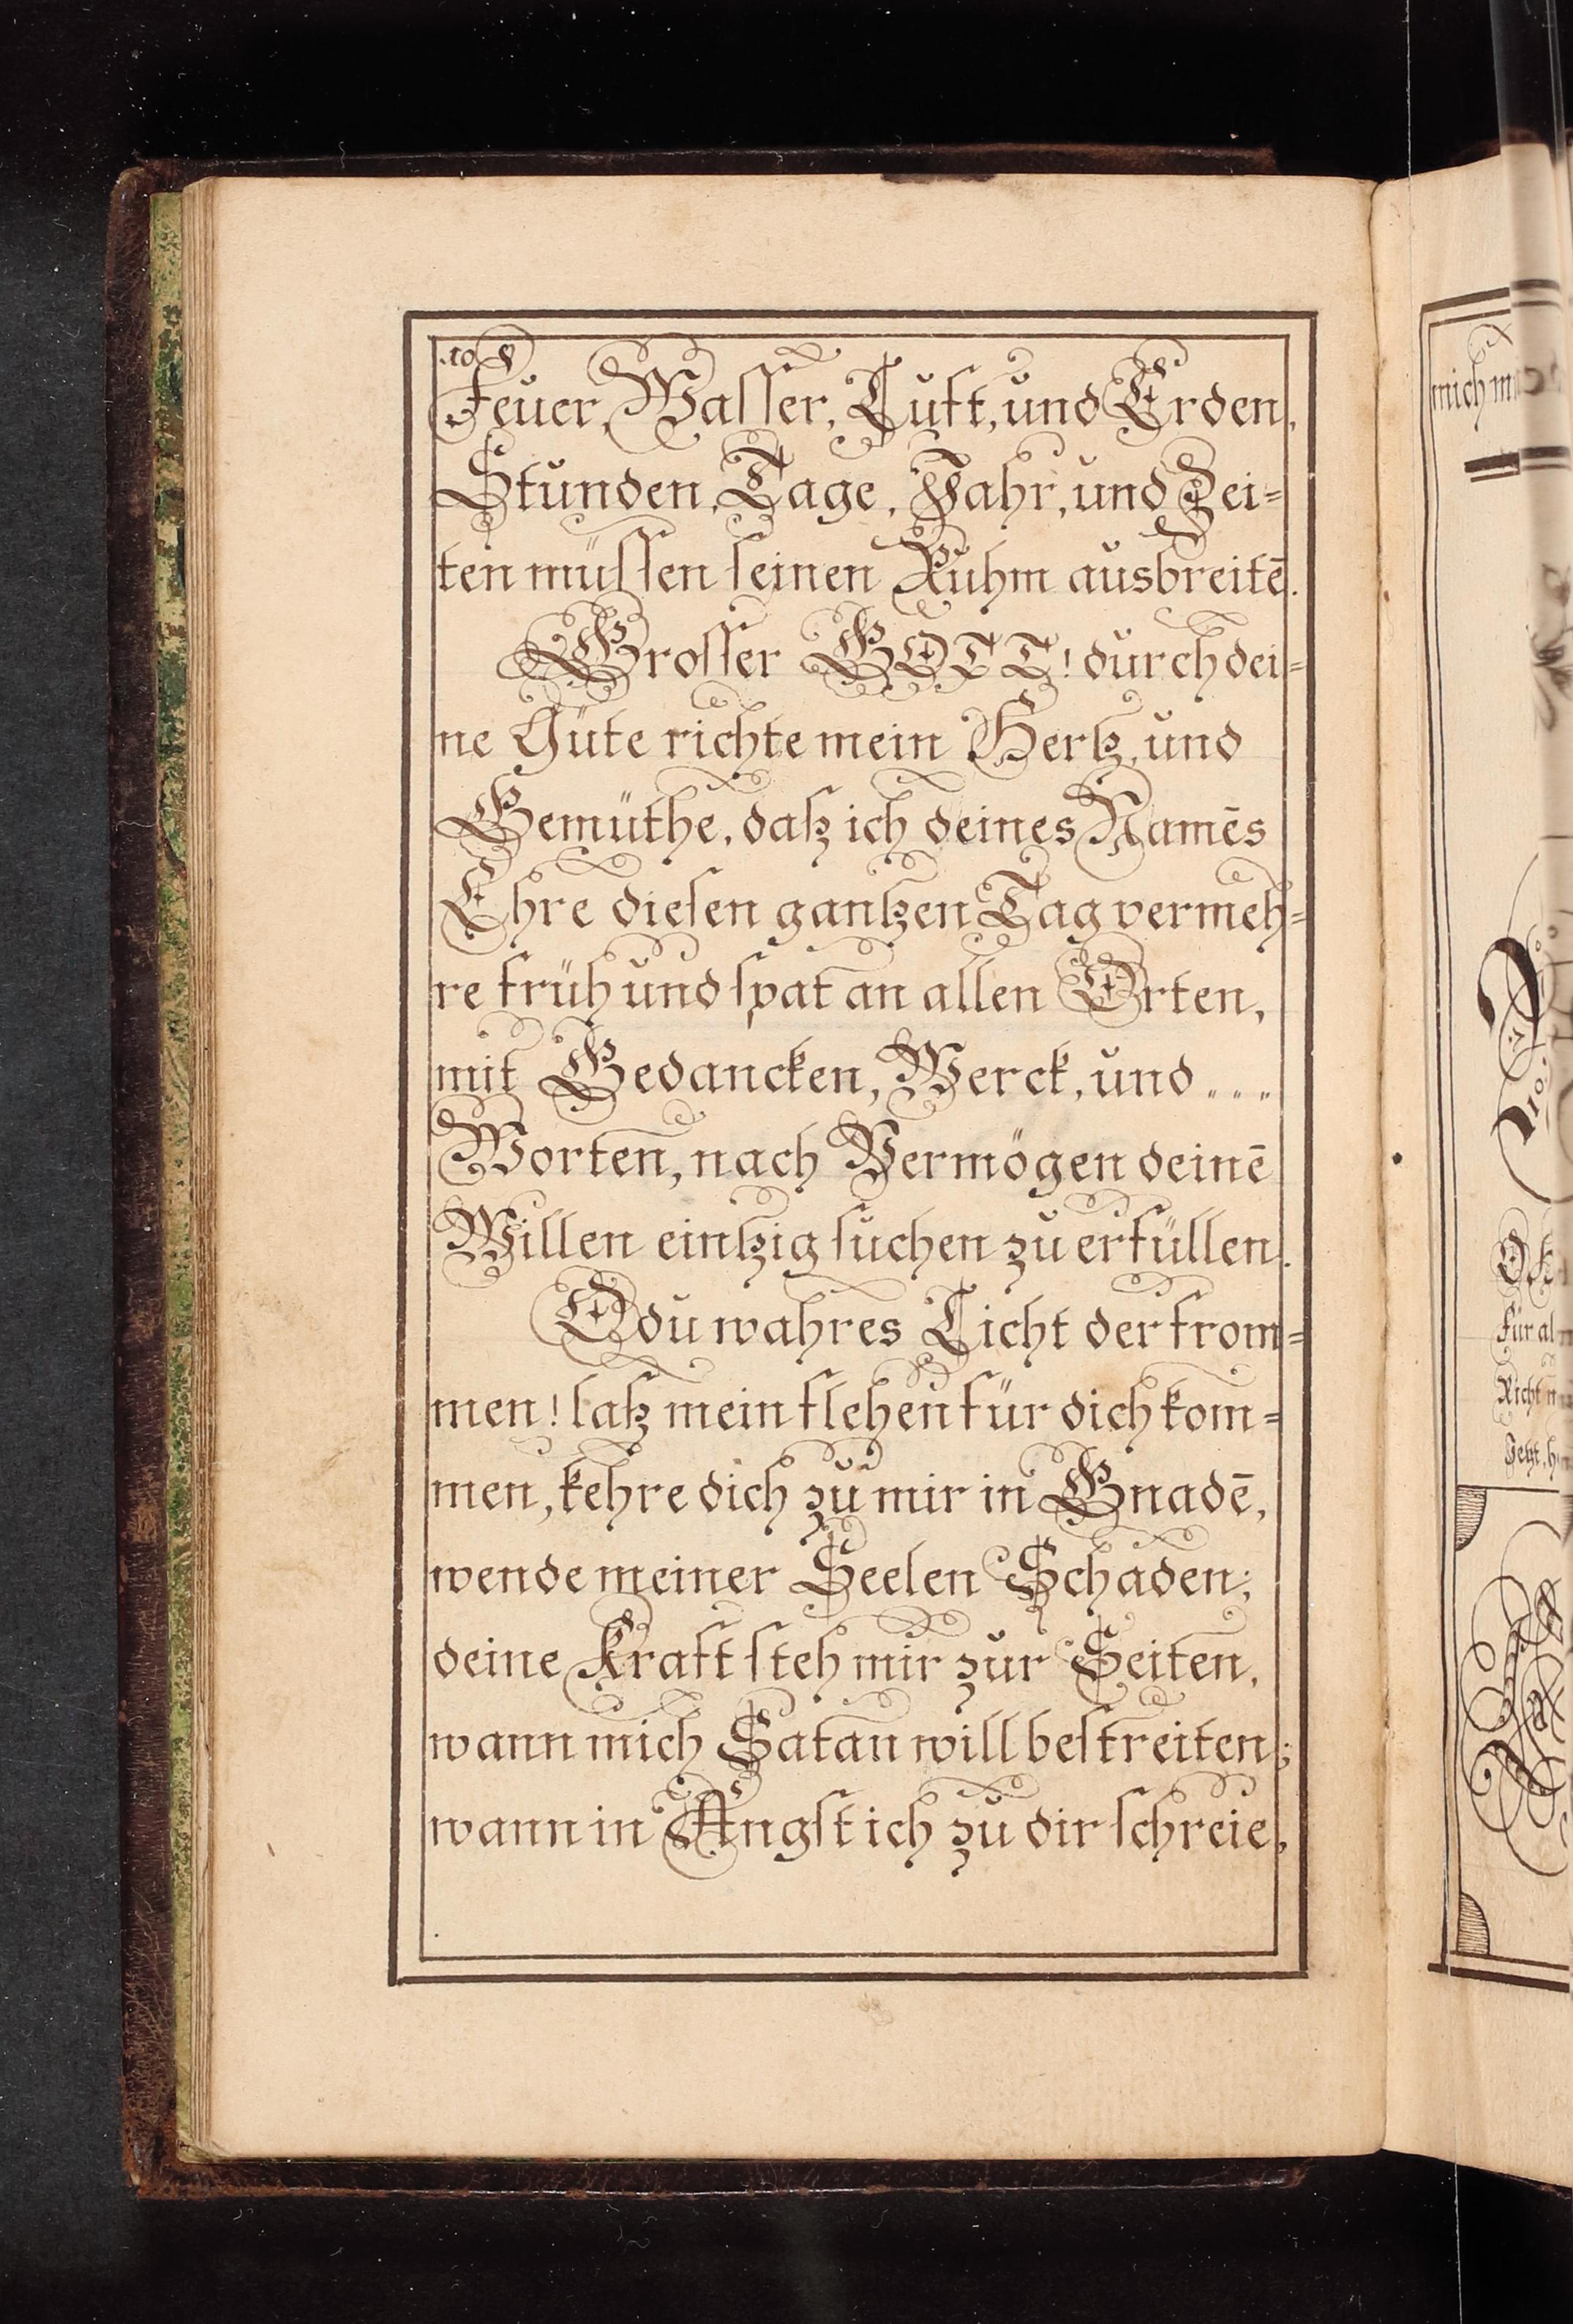 .10.
Feuer, Waſſer, Luft, und Erden,
Stunden, Tage, Jahr, und Zei=
ten müſſen ſeinen Ruhm ausbreitē.
Groſſer GOTT! durch dei=
ne Güte richte mein Hertz, und
Gemüthe, daß ich deines Namēs
Ehre dieſen gantzen Tag vermeh=
re früh und ſpat an allen Orten,
mit Gedancken, Werck, und . . . .
Worten, nach Vermögen deinē
Willen eintzig ſuchen zu erfüllen.
O du wahres Licht der from=
men! laß mein flehen für dich kom=
men, kehre dich zu mir in Gnadē,
wende meiner Seelen Schaden;
deine Kraft ſteh mir zur Seiten,
wann mich Satan will beſtreiten;
wann in Angſt ich zu dir ſchreie,
mich
Für
Richt
Jetzt,